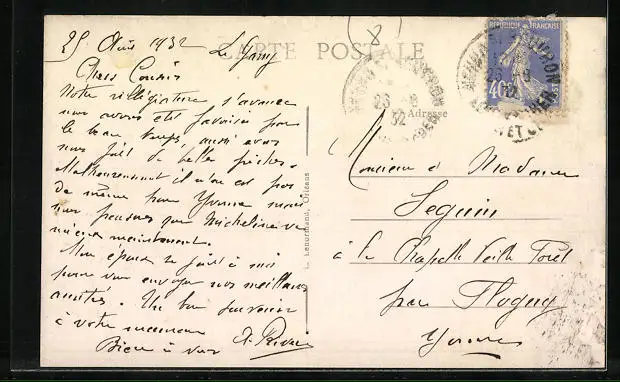 25 Août 1932 Le Gany
CARTE POSTALE
Adresse
Chers Cousins
Notre villégiature s'avance
nous avons été favorisés par
le beau temps, aussi avons
nous fait de belles pêches.
Malheureusement il n'en est pas
de même pour Yvonne mais
nous pensons que Micheline va
mieux maintenant.
Mon épouse se joint à moi
pour vous envoyer nos meilleures
amitiés. Un bon souvenir
à votre maman
Bien à vous
L. Lenormand, Orléans
REPUBLIQUE FRANÇAISE
40
POSTES
Monsieur et Madame
Seguin
à la Chapelle Vieille Forêt
par Flogny
Yonne